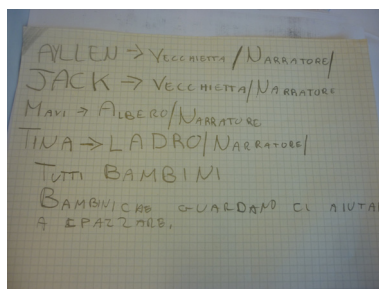 AYLLEN → VECCHIETTA/NARRATORE/
JACK → VECCHIETTA/NARRATORE
MAVI → ALBERO/NARRATORE
TINA → LADRO/NARRATORE/
TUTTI BAMBINI
BAMBINI CHE GUARDANO CI AIUTA
A SPAZZARE.